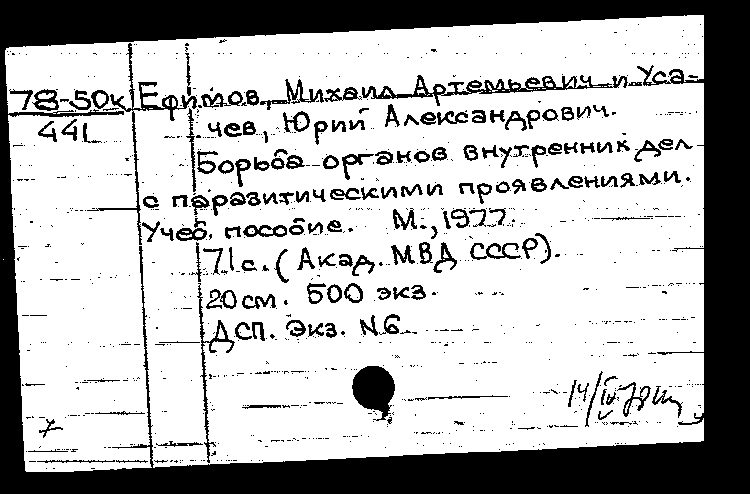 78-50к Ефимов, Михаил Артемьевич и Уса-
441 чев, Юрий Александрович.
Борьба органов внутренних дел
с паразитическими проявлениями.
Учеб. пособие. М., 1977.
71с. (Акад. МВД СССР).
20 см. 500 экз.
ДСП. Экз. N6
14/IV-78